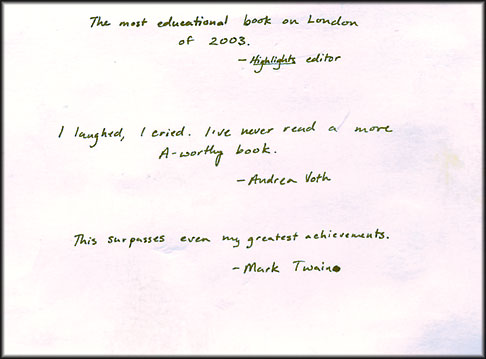 The most educational book on London
of 2003.
- Highlights editor
I laughed, I cried. I've never read a more
A-worthy book.
- Andrea Voth
This surpasses even my greatest achievements.
- Mark Twain